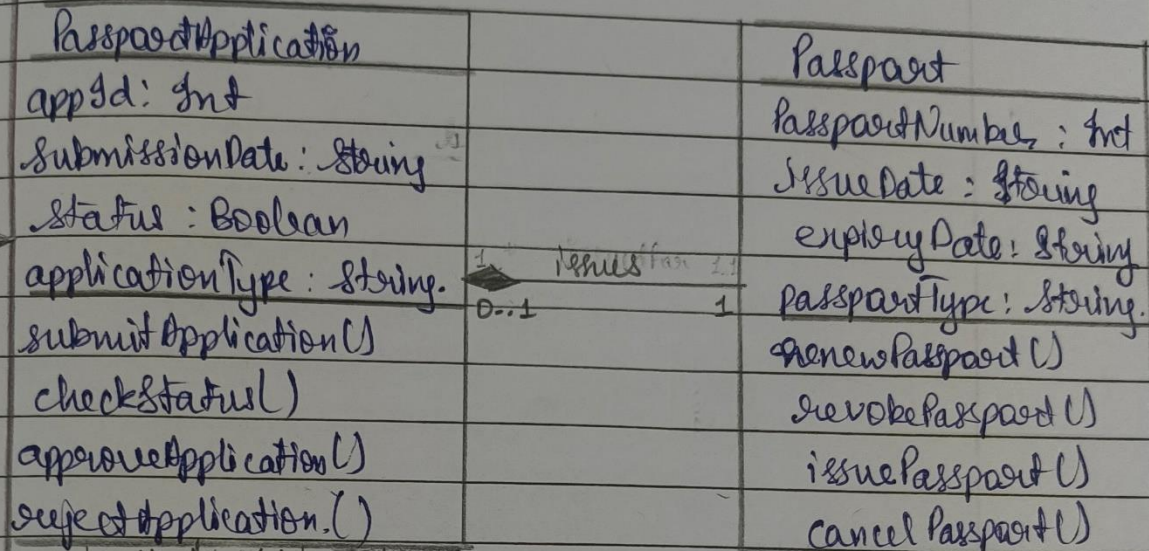 PassportApplication
appId: Int
submissionDate: String
status: Boolean
applicationType: String.
submitApplication()
checkStatus()
approveApplication()
rejectApplication.()
1
issues
0..1
1
Passport
PassportNumber: Int
issueDate: String
expiryDate: String
passportType: String.
renewPassport()
revokePassport()
issuePassport()
cancelPassport()